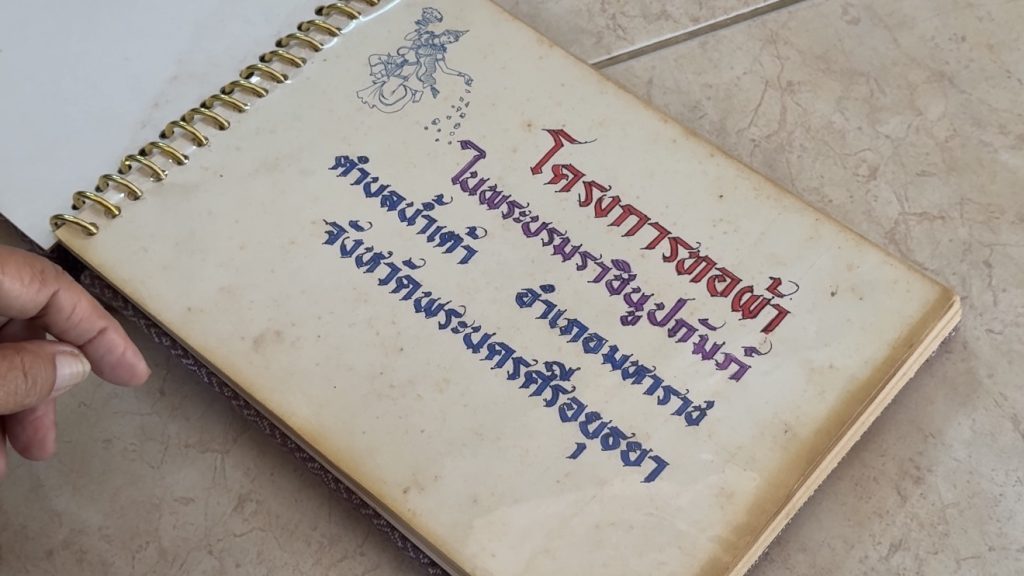 โครงการทอผ้า
ในพระบรมราชินูปถัมภ์
ตำบลน้ำเต้า อำเภอมหาราช
จังหวัดพระนครศรีอยุธยา